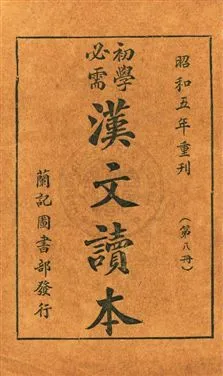 昭和五年重刊
(第八冊)
初學
必需
漢文讀本
蘭記圖書部發行